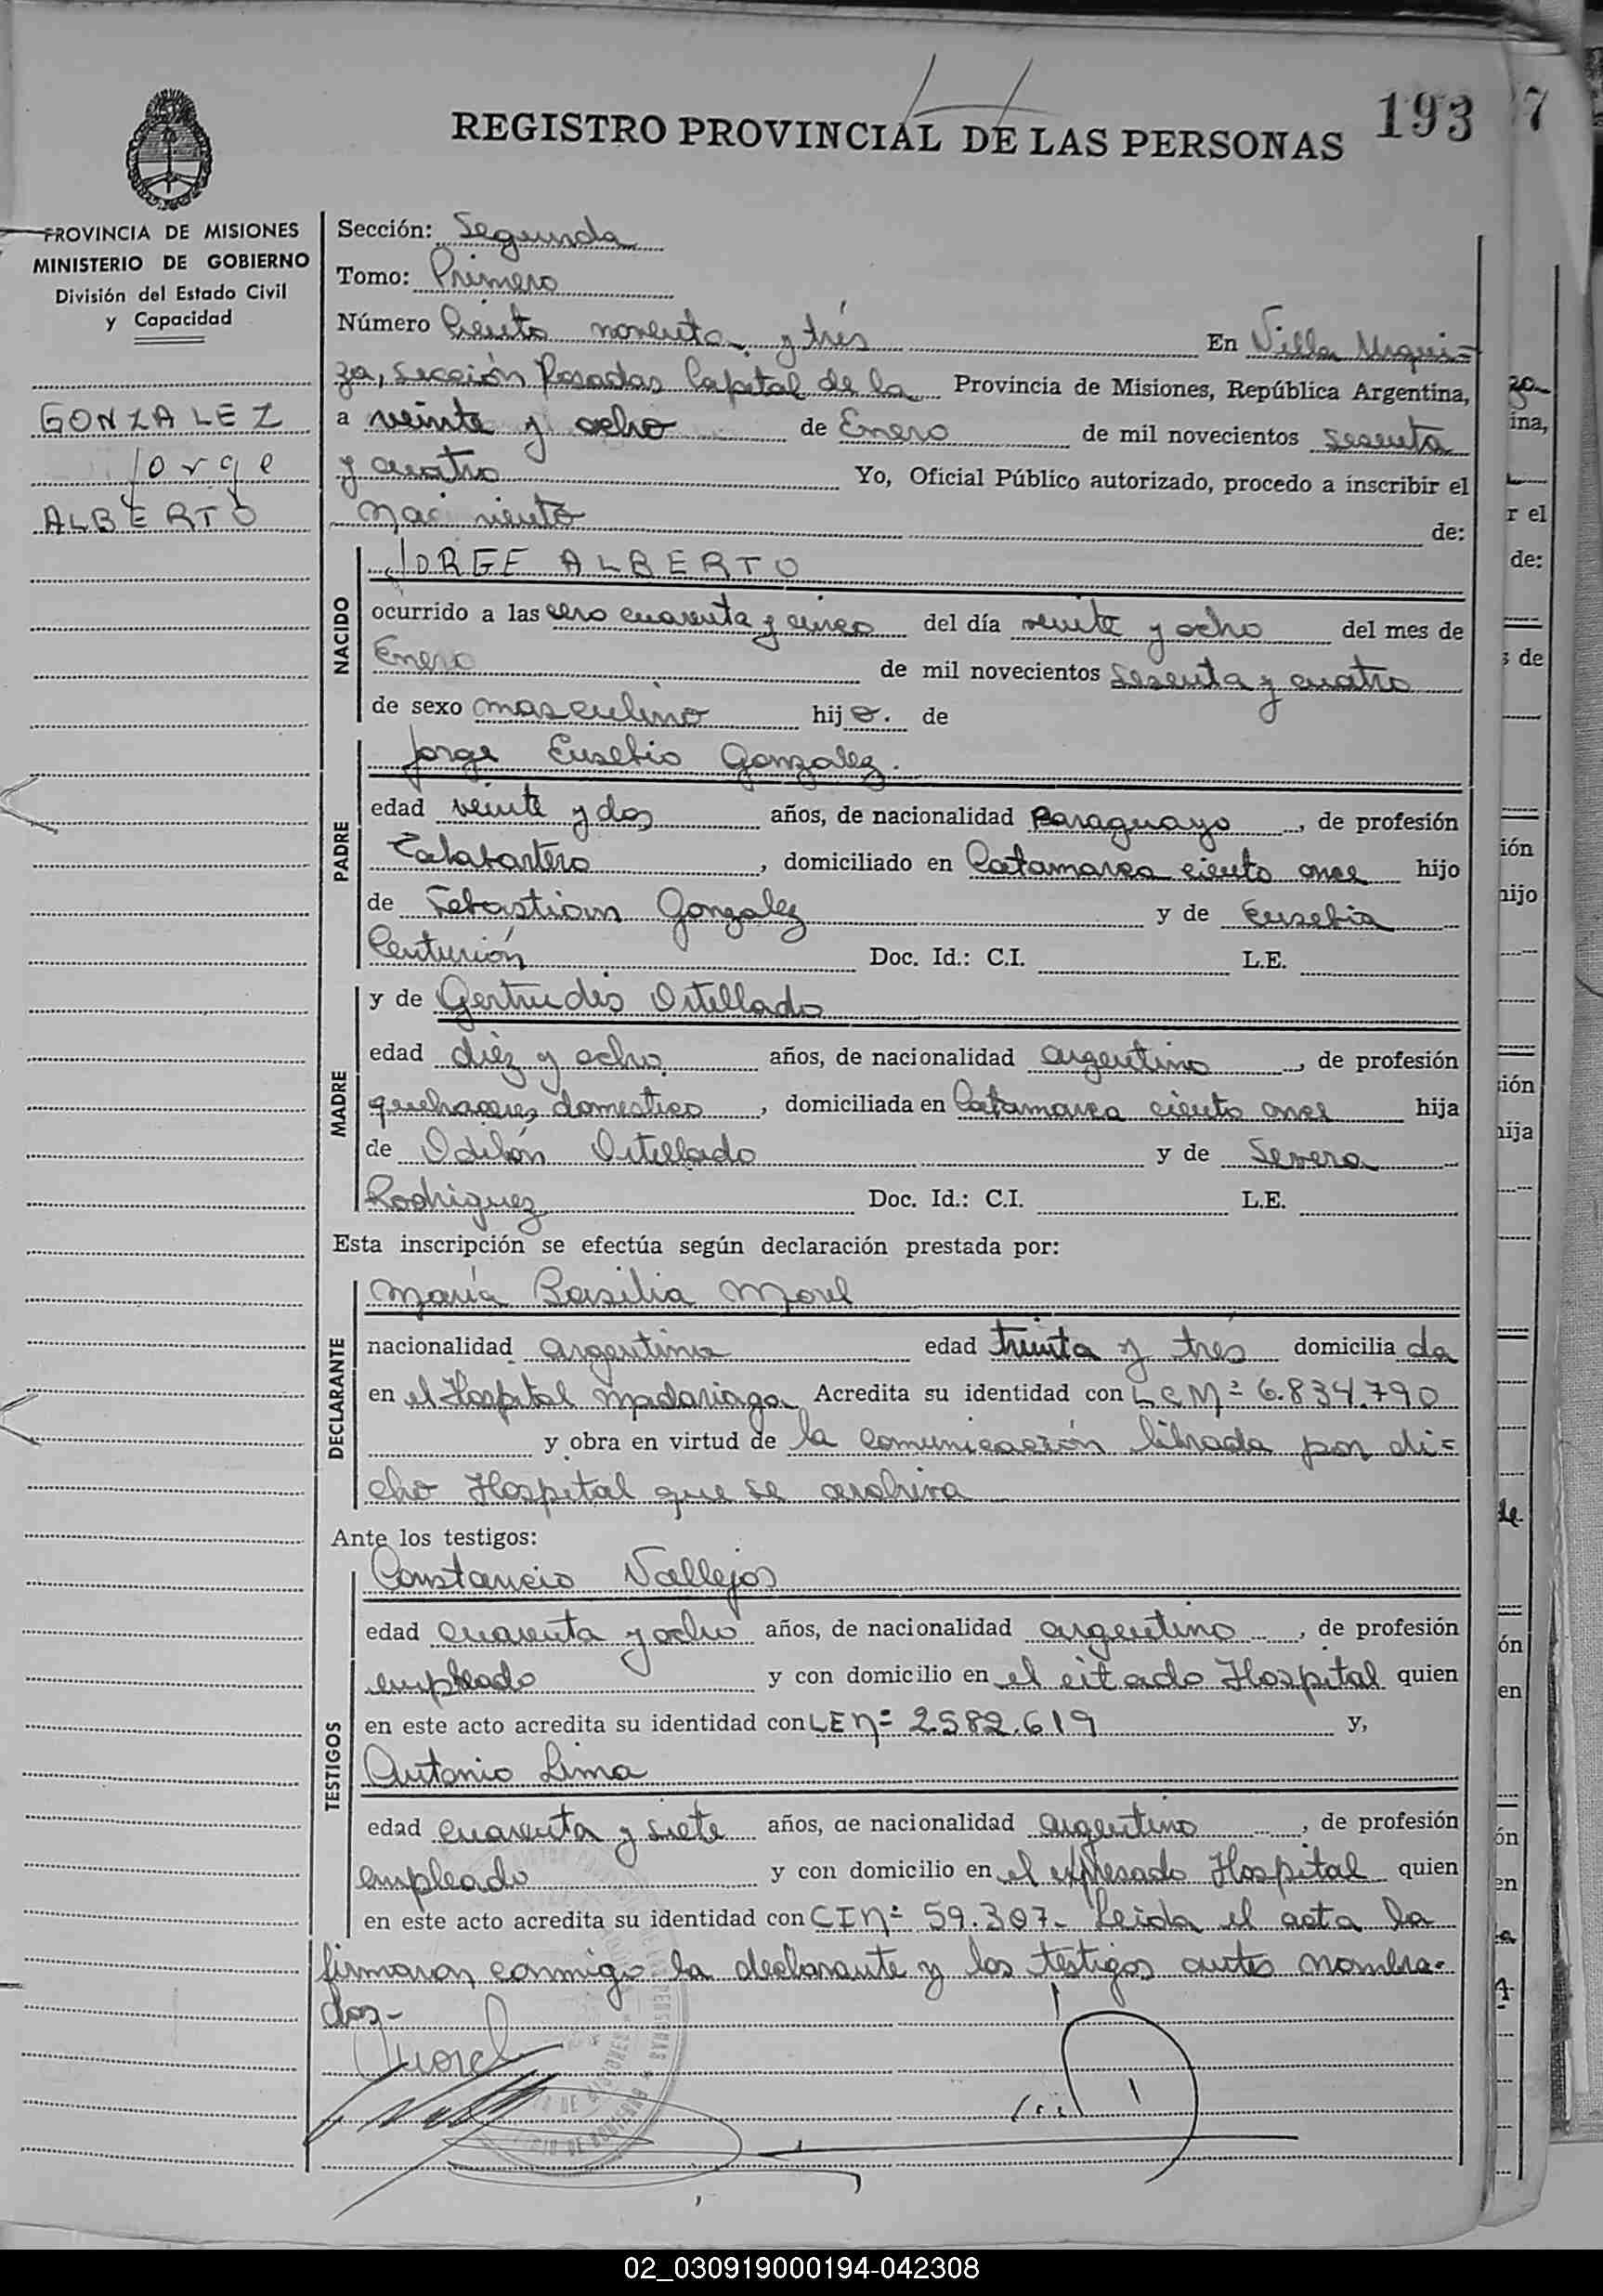 193
REGISTRO PROVINCIAL DE LAS PERSONAS
PROVINCIA DE MISIONES
MINISTERIO DE GOBIERNO
División del Estado Civil
y Capacidad
GONZALEZ
Jorge
ALBERTO
Sección: Segunda
Tomo: Primero
Número Ciento noventa y trés En Villa Urqui=
za, sección Posadas Capital de la Provincia de Misiones, República Argentina,
a veinte y ocho de Enero de mil novecientos sesenta
y cuatro Yo, Oficial Público autorizado, procedo a inscribir el
Nacimiento de:
NACIDO
JORGE ALBERTO
ocurrido a las cero cuarenta y cinco del día veinte y ocho del mes de
Enero de mil novecientos sesenta y cuatro
de sexo masculino hijo. de
PADRE
Jorge Eusebio Gonzalez.
edad veinte y dos años, de nacionalidad Paraguayo, de profesión
Talabartero, domiciliado en Catamarca ciento once hijo
de Sebastian Gonzalez y de Eusebia
Centurión Doc. Id.: C.I. L.E.
MADRE
y de Gertrudis Ortellado
edad diéz y ocho años, de nacionalidad argentina, de profesión
quehaceres domestico, domiciliada en Catamarca ciento once hija
de Odilón Ortellado y de Severa
Rodriguez Doc. Id.: C.I. L.E.
Esta inscripción se efectúa según declaración prestada por:
DECLARANTE
María Basilia Morel
nacionalidad argentina edad treinta y trés domiciliada
en el Hospital Madariaga Acredita su identidad con LCNº 6.834.790
y obra en virtud de la comunicación librada por di=
cho Hospital que se archiva
Ante los testigos:
TESTIGOS
Constancio Vallejos
edad cuarenta y ocho años, de nacionalidad argentino, de profesión
empleado y con domicilio en el citado Hospital quien
en este acto acredita su identidad con LENº 2.582.619 y,
Antonio Lima
edad cuarenta y siete años, de nacionalidad argentino, de profesión
empleado y con domicilio en el expresado Hospital quien
en este acto acredita su identidad con CINº 59.307- Leida el acta la
firmaron conmigo la declarante y los testigos antes nombra-
dos-
Morel
02_030919000194-042308